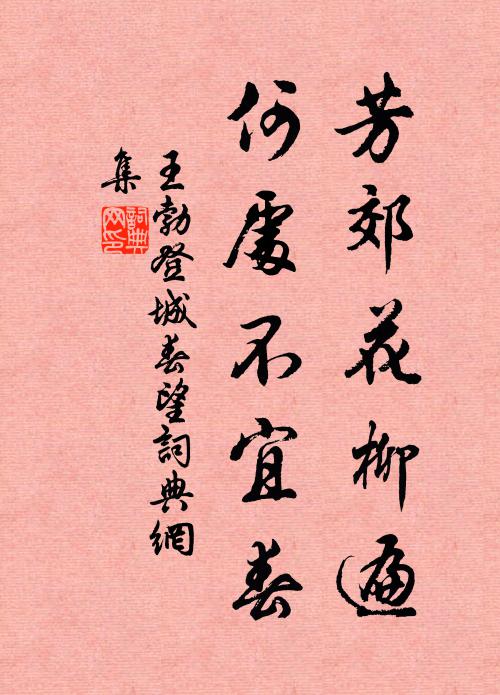 芳郊花柳遍
何處不宜春
王勃登城春望詞典網
集
詞典網印